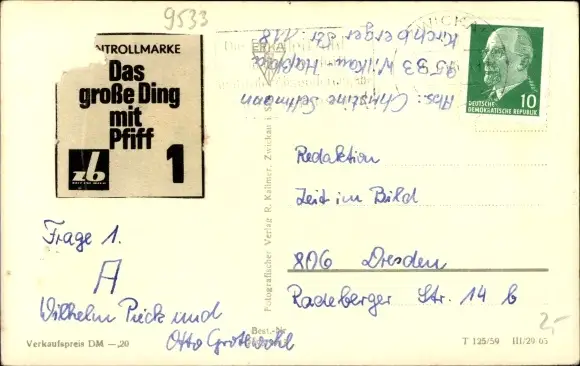 9533
NTROLLMARKE
Das
große Ding
mit
Pfiff
1
zb
Frage 1.
A
Wilhelm Pieck und
Otto Grotewohl
Verkaufspreis DM —,20
Best.-Nr.
Fotografischer Verlag R. Kallmer, Zwickau i. S.
Abs: Christine
95 93 Wilkau Haßlau
Kirchberger Str. 118
ZWICKAU
DEUTSCHE
DEMOKRATISCHE REPUBLIK
10
Redaktion
Zeit im Bild
806 Dresden
Radeberger Str. 14 b
2,-
T 125/59 III/29 05